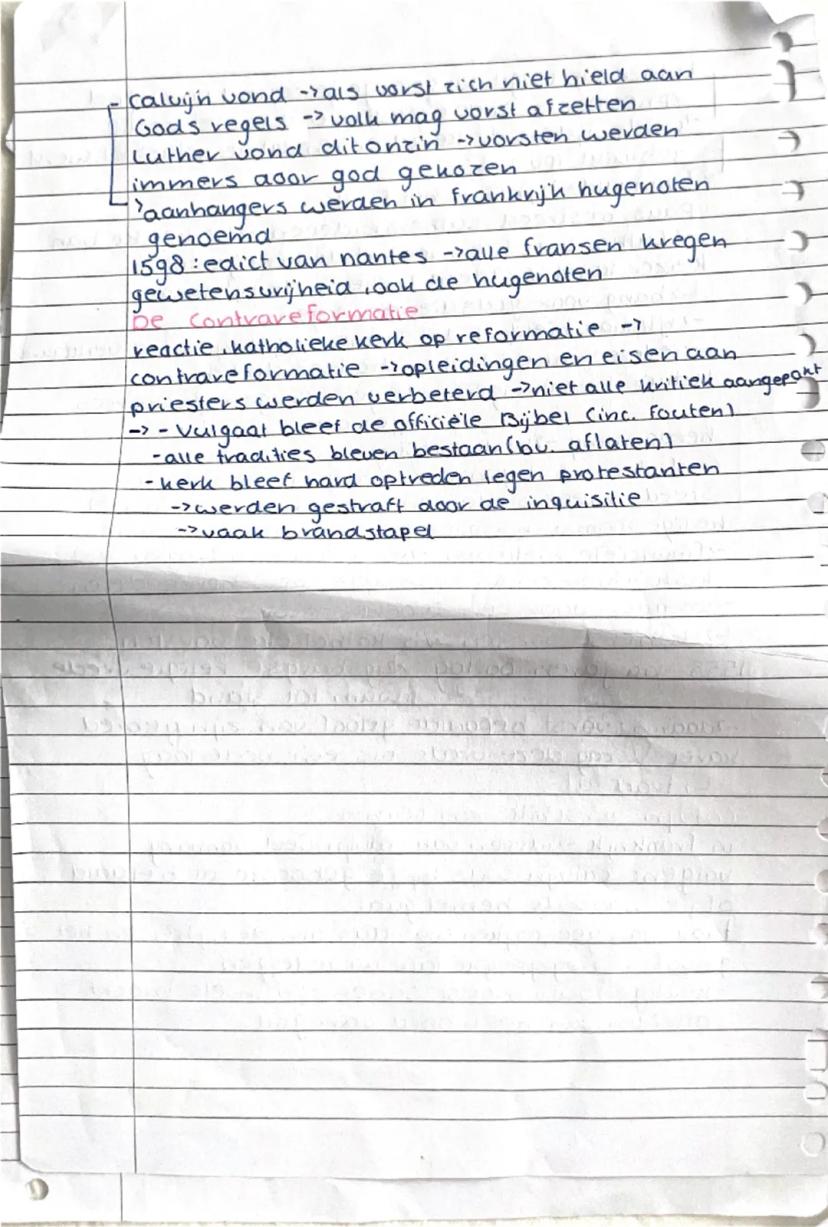 - Calvijn vond -> als vorst zich niet hield aan
Gods regels -> volk mag vorst afzetten
Luther vond dit onzin -> vorsten werden
immers door god gekozen
> aanhangers werden in frankrijk hugenoten
genoemd
1598: edict van nantes -> alle fransen kregen
gewetensvrijheid, ook de hugenoten
De Contrareformatie
reactie katholieke kerk op reformatie ->
contrareformatie -> opleidingen en eisen aan
priesters werden verbeterd -> niet alle kritiek aangepakt
-> - Vulgaat bleef de officiële Bijbel (inc. fouten)
- alle tradities bleven bestaan (bv. aflaten)
- kerk bleef hard optreden tegen protestanten
-> werden gestraft door de inquisitie
-> vaak brandstapel